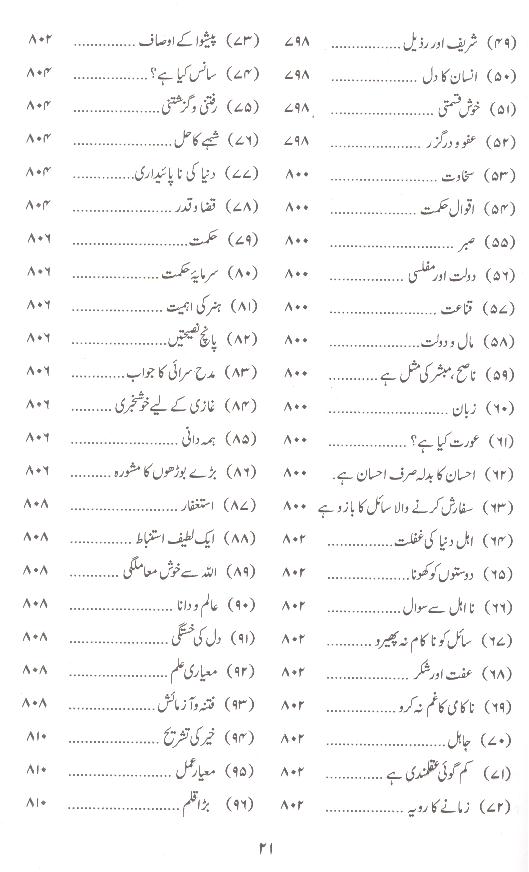 (۴۹) شریف اور رذیل ................ ۷۹۸
(۵۰) انسان کا دل ................ ۷۹۸
(۵۱) خوش قسمتی ................ ۷۹۸
(۵۲) عفو و درگزر ................ ۷۹۸
(۵۳) سخاوت ................ ۸۰۰
(۵۴) اقوال حکمت ................ ۸۰۰
(۵۵) صبر ................ ۸۰۰
(۵۶) دولت اور مفلسی ................ ۸۰۰
(۵۷) قناعت ................ ۸۰۰
(۵۸) مال و دولت ................ ۸۰۰
(۵۹) ناصح، مبشر کی مثل ہے ............ ۸۰۰
(۶۰) زبان ................ ۸۰۰
(۶۱) عورت کیا ہے؟ ................ ۸۰۰
(۶۲) احسان کا بدلہ صرف احسان ہے. ۸۰۰
(۶۳) سفارش کرنے والا سائل کا بازو ہے ۸۰۰
(۶۴) اہل دنیا کی غفلت ................ ۸۰۲
(۶۵) دوستوں کو کھونا ................ ۸۰۲
(۶۶) نا اہل سے سوال ................ ۸۰۲
(۶۷) سائل کو نا کام نہ پھیرو ............ ۸۰۲
(۶۸) عفت اور شکر ................ ۸۰۲
(۶۹) نا کامی کا غم نہ کرو ............ ۸۰۲
(۷۰) جاہل ................ ۸۰۲
(۷۱) کم گوئی عقلمندی ہے ............ ۸۰۲
(۷۲) زمانے کا رویہ ................ ۸۰۲
(۷۳) پیشوا کے اوصاف ............ ۸۰۲
(۷۴) سانس کیا ہے؟ ................ ۸۰۴
(۷۵) رفتنی و گزشتنی ................ ۸۰۴
(۷۶) شبہے کا حل ................ ۸۰۴
(۷۷) دنیا کی نا پائیداری ............ ۸۰۴
(۷۸) قضا و قدر ................ ۸۰۴
(۷۹) حکمت ................ ۸۰۶
(۸۰) سرمایۂ حکمت ................ ۸۰۶
(۸۱) ہنر کی اہمیت ................ ۸۰۶
(۸۲) پانچ نصیحتیں ................ ۸۰۶
(۸۳) مدح سرائی کا جواب ............ ۸۰۶
(۸۴) غازی کے لیے خوشخبری .......... ۸۰۶
(۸۵) ہمہ دانی ................ ۸۰۶
(۸۶) بڑے بوڑھوں کا مشورہ .......... ۸۰۶
(۸۷) استغفار ................ ۸۰۸
(۸۸) ایک لطیف استنباط ............ ۸۰۸
(۸۹) اللہ سے خوش معاملگی ............ ۸۰۸
(۹۰) عالم و دانا ................ ۸۰۸
(۹۱) دل کی خستگی ................ ۸۰۸
(۹۲) معیاری علم ................ ۸۰۸
(۹۳) فتنہ و آزمائش ................ ۸۰۸
(۹۴) خیر کی تشریح ................ ۸۱۰
(۹۵) معیار عمل ................ ۸۱۰
(۹۶) بڑا قلم ................ ۸۱۰
۲۱